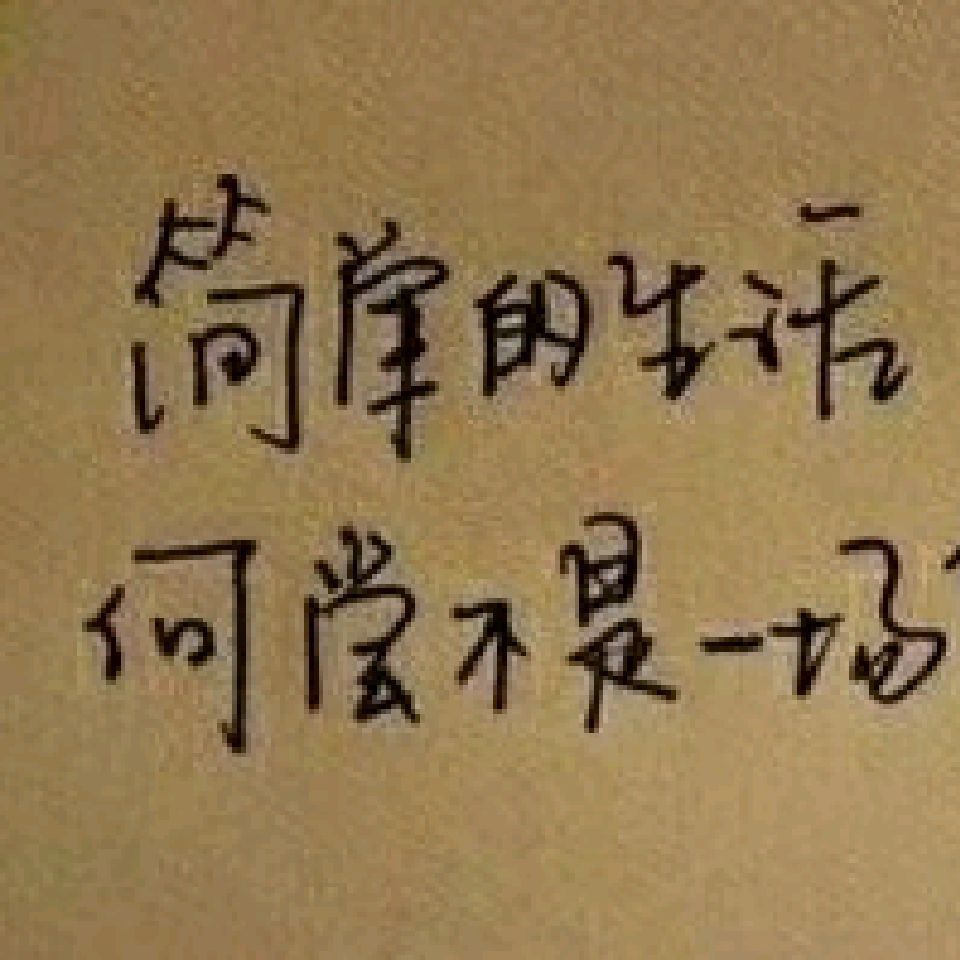 简单的生活
何尝不是一场